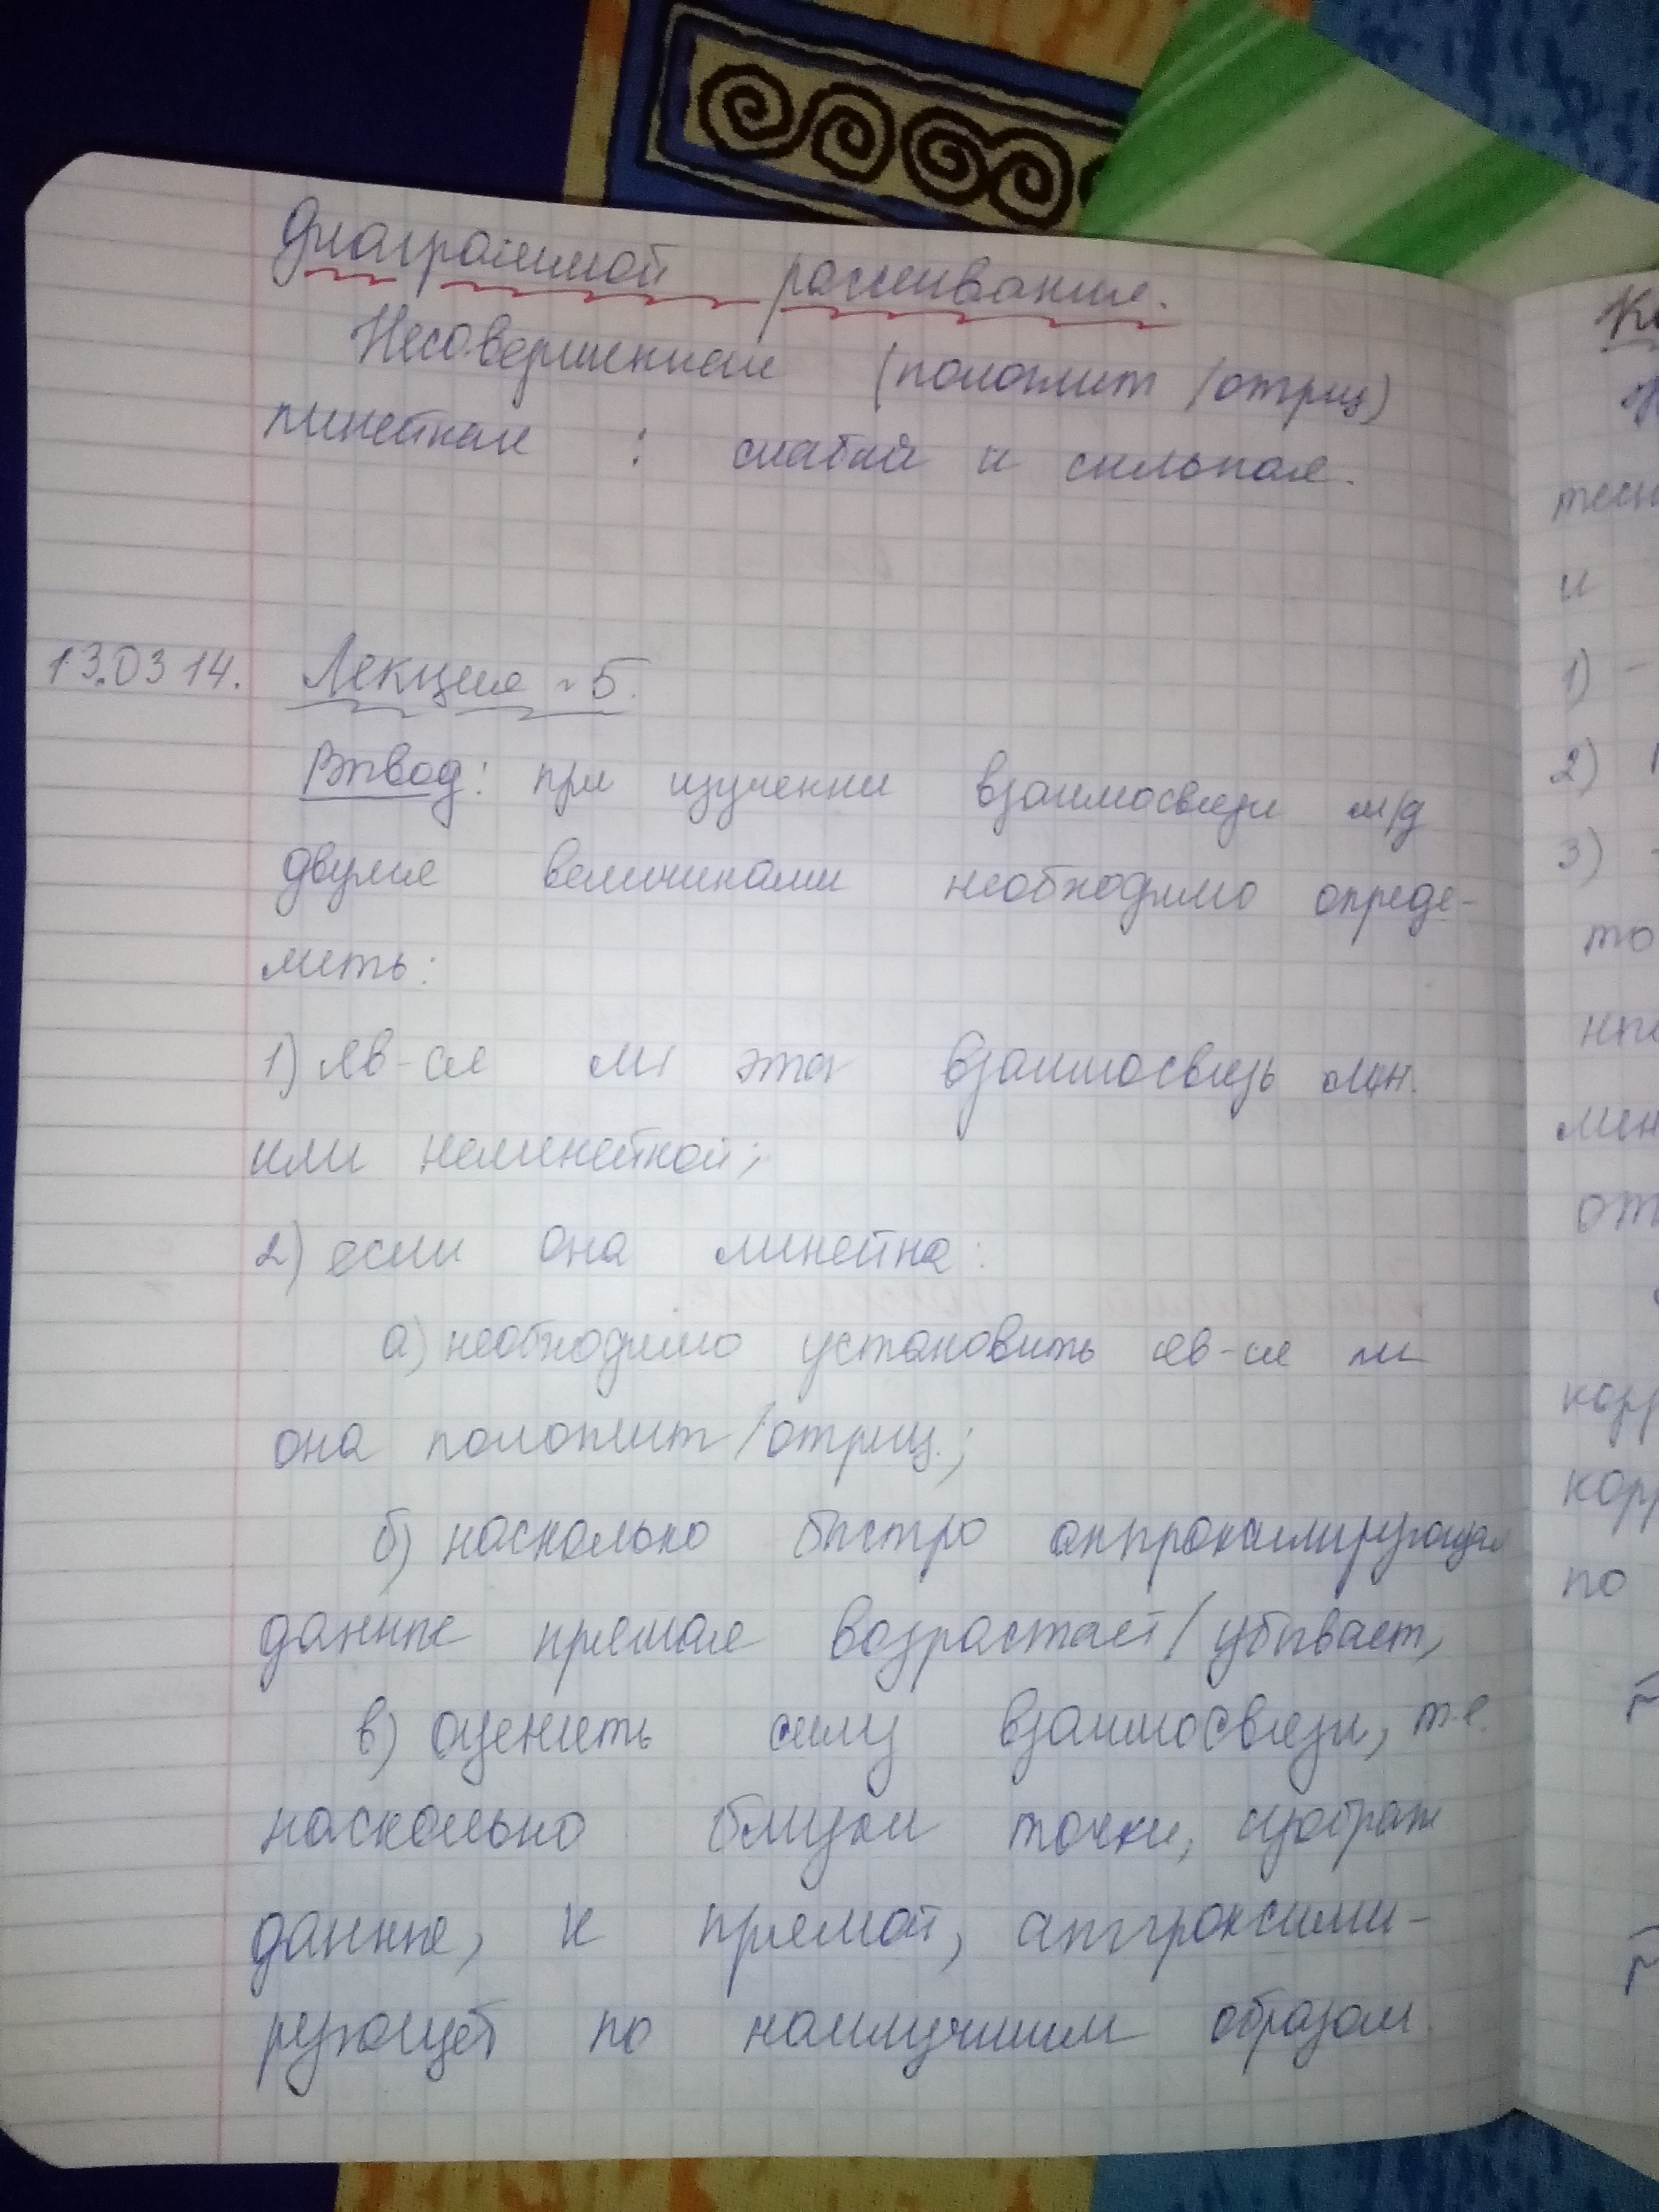 диаграммой рассеивания.
Несовершенная (положит/отриц)
линейная : слабая и сильная.
13.03 14. Лекция ~5.
Вывод: при изучении взаимосвязи м/д
двумя величинами необходимо опреде-
лить:
1) яв-ся ли эта взаимосвязь лин.
или нелинейной;
2) если она линейна:
а) необходимо установить яв-ся ли
она положит/отриц.;
б) насколько быстро аппроксимирующая
данные прямая возрастает/убывает,
в) оценить силу взаимосвязи, т.е.
насколько близки точки, изображ
данные, к прямой, аппроксими-
рующей по наилучшим образом.
тесн
и
1) -
2)
3)
то
лин
от
корр
корр
по